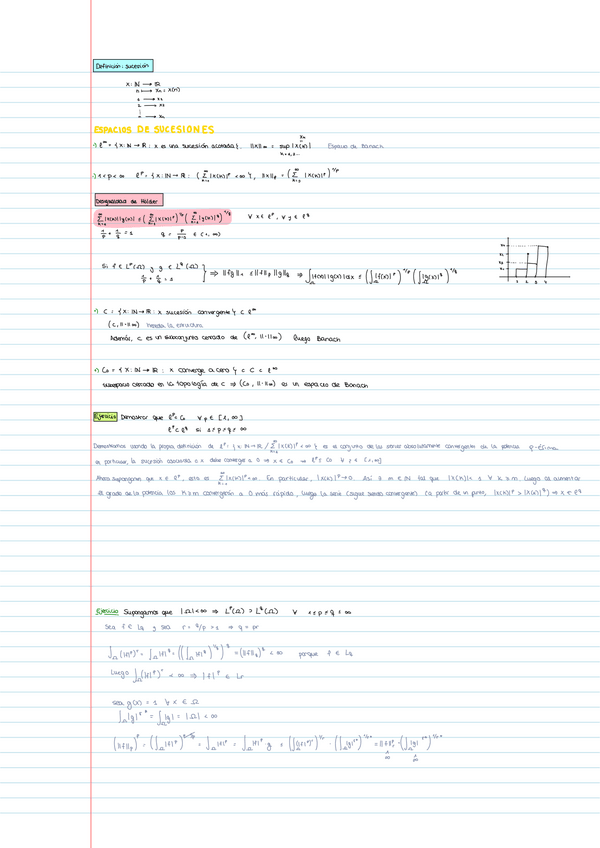 Definición: sucesión
x: ℕ → ℝ
n ↦ xₙ = x(n)
1 → x₁
2 → x₂
n → xₙ
ESPACIOS DE SUCESIONES
·) ℓ^∞ = {x: ℕ → ℝ : x es una sucesión acotada}, ||x||_∞ = sup |x(k)| Espacio de Banach
·) 1<p<∞ ℓ^p = {x: ℕ → ℝ : (∑ |x(k)|^p < ∞}, ||x||_p = (∑ |x(k)|^p)^{1/p}
Desigualdad de Hölder
∑ |x(k)||y(k)| ≤ (∑ |x(k)|^p)^{1/p} (∑ |y(k)|^q)^{1/q} ∀ x ∈ ℓ^p, ∀ y ∈ ℓ^q
1/p + 1/q = 1 q = p/(p-1) ∈ (1,∞)
Si f ∈ L^p(Ω) y g ∈ L^q(Ω)
1/p + 1/q = 1 } ⇒ ||fg||₁ ≤ ||f||_p ||g||_q ⇒ ∫_Ω |f(x)||g(x)|dx ≤ (∫_Ω |f(x)|^p)^{1/p} (∫_Ω |g(x)|^q)^{1/q}
·) C = {x: ℕ → ℝ : x sucesión convergente} ⊂ ℓ^∞
(C, ||·||_∞) hereda la estructura
Además, C es un subconjunto cerrado de (ℓ^∞, ||·||_∞) luego Banach
·) C₀ = {x: ℕ → ℝ : x converge a cero} ⊂ C ⊂ ℓ^∞
subespacio cerrado en la topología de C ⇒ (C₀, ||·||_∞) es un espacio de Banach
Ejercicio Demostrar que ℓ^p ⊂ C₀ ∀ p ∈ [1, ∞)
ℓ^p ⊂ ℓ^q si 1 ≤ p ≤ q ≤ ∞
Demostramos usando la propia definición de ℓ^p = {x: ℕ → ℝ / ∑ |x(k)|^p < ∞} es el conjunto de las series absolutamente convergentes de la potencia p-ésima
en particular, la sucesión asociada a x debe converger a 0 ⇒ x ∈ C₀ ⇒ ℓ^p ⊂ C₀ ∀ p ∈ [1,∞)
Ahora supongamos que x ∈ ℓ^p, esto es ∑ |x(k)|^p < ∞. En particular, |x(k)|^p → 0. Así ∃ m ∈ ℕ tal que |x(k)| < 1 ∀ k ≥ m. Luego al aumentar
el grado de la potencia los k ≥ m convergerán a 0 más rápido, luego la serie (sigue siendo convergente) (a partir de un punto, |x(k)|^p > |x(k)|^q) ⇒ x ∈ ℓ^q
Ejercicio Supongamos que |Ω| < ∞ ⇒ L^p(Ω) ⊃ L^q(Ω) ∀ 1 ≤ p ≤ q ≤ ∞
Sea f ∈ L_q y sea r = q/p ≥ 1 ⇒ q = pr
∫_Ω (|f|^p)^r = ∫_Ω |f|^q = ((∫_Ω |f|^q)^{1/q})^q = (||f||_q)^q < ∞ porque f ∈ L_q
Luego ∫_Ω (|f|^p)^r < ∞ ⇒ |f|^p ∈ L_r
Sea g(x) = 1 ∀ x ∈ Ω
∫_Ω |g| = |Ω| < ∞